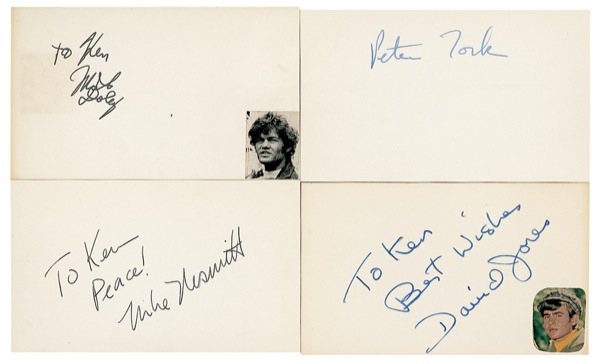 To Ken
Peter Tork
To Ken
Peace!
Mike Nesmith
To Ken
Best Wishes
David Jones